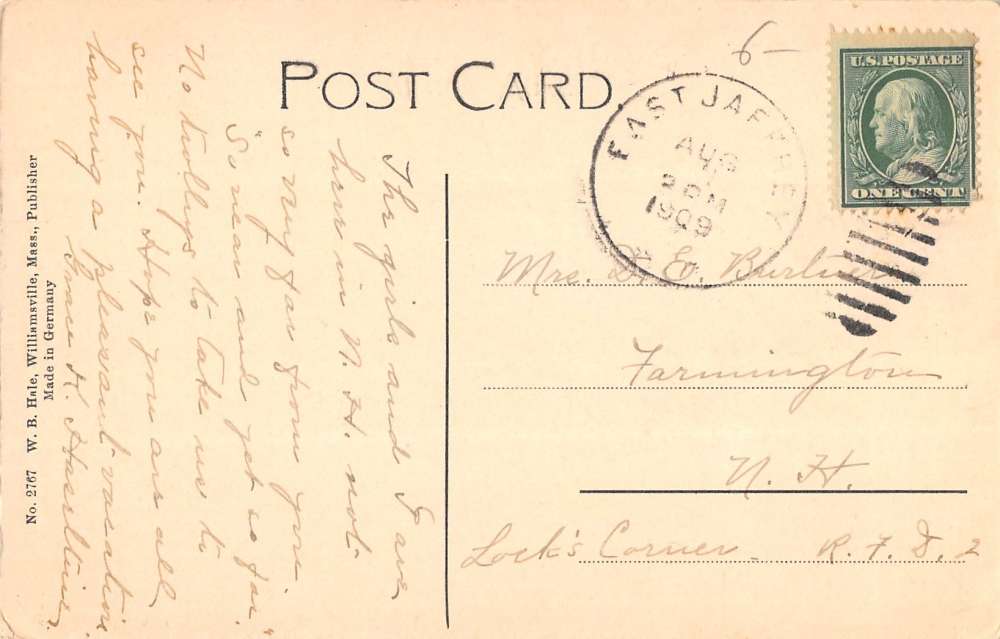 POST CARD
6-
U.S. POSTAGE
ONE CENT
EAST JAFFREY
AUG
2 PM
1909
The girls and I are
here in N. H. not
so very far from you.
"So near and yet so far."
No trolleys to take us to
see you. Hope you are all
having a pleasant vacation.
Grace K. Haseltine.
No. 2767 W. B. Hale, Williamsville, Mass., Publisher
Made in Germany
Mrs. D. E.
Farmington
N. H.
Lock's Corner - R. F. D. 2